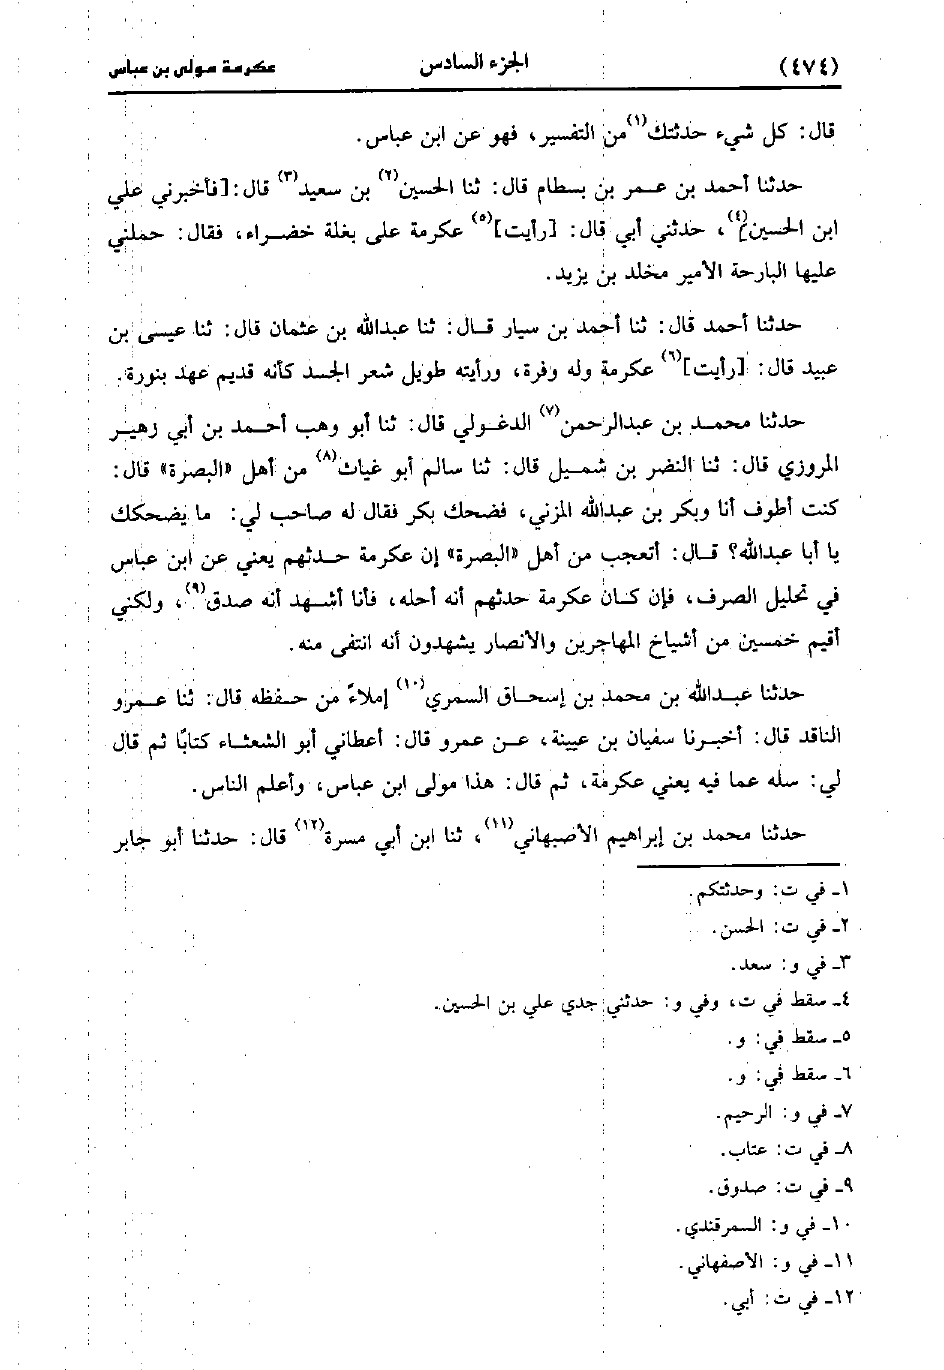 (٤٧٤) الجزء السادس عكرمة مولى بن عباس
قال: كل شيء حدثتك(١) من التفسير، فهو عن ابن عباس.
حدثنا أحمد بن عمر بن بسطام قال: ثنا الحسين(٢) بن سعيد(٣) قال: [فأخبرني علي
ابن الحسين](٤)، حدثني أبي قال: [رأيت](٥) عكرمة على بغلة خضراء، فقال: حملني
عليها البارحة الأمير مخلد بن يزيد.
حدثنا أحمد قال: ثنا أحمد بن سيار قال: ثنا عبدالله بن عثمان قال: ثنا عيسى بن
عبيد قال: [رأيت](٦) عكرمة وله وفرة، ورأيته طويل شعر الجسد كأنه قديم عهد بنورة.
حدثنا محمد بن عبدالرحمن(٧) الدغولي قال: ثنا أبو وهب أحمد بن أبي زهير
المروزي قال: ثنا النضر بن شميل قال: ثنا سالم أبو غياث(٨) من أهل «البصرة» قال:
كنت أطوف أنا وبكر بن عبدالله المزني، فضحك بكر فقال له صاحب لي: ما يضحكك
يا أبا عبدالله؟ قال: أتعجب من أهل «البصرة» إن عكرمة حدثهم يعني عن ابن عباس
في تحليل الصرف، فإن كان عكرمة حدثهم أنه أحله، فأنا أشهد أنه صدق(٩)، ولكني
أقيم خمسين من أشياخ المهاجرين والأنصار يشهدون أنه انتفى منه.
حدثنا عبدالله بن محمد بن إسحاق السمري(١٠) إملاءً من حفظه قال: ثنا عمرو
الناقد قال: أخبرنا سفيان بن عيينة، عن عمرو قال: أعطاني أبو الشعثاء كتابًا ثم قال
لي: سله عما فيه يعني عكرمة، ثم قال: هذا مولى ابن عباس، وأعلم الناس.
حدثنا محمد بن إبراهيم الأصبهاني(١١)، ثنا ابن أبي مسرة(١٢) قال: حدثنا أبو جابر
١ـ في ت: وحدثتكم.
٢ـ في ت: الحسن.
٣ـ في و: سعد.
٤ـ سقط في ت، وفي و: حدثني جدي علي بن الحسين.
٥ـ سقط في: و.
٦ـ سقط في: و.
٧ـ في و: الرحيم.
٨ـ في ت: عتاب.
٩ـ في ت: صدوق.
١٠ـ في و: السمرقندي.
١١ـ في و: الأصفهاني.
١٢ـ في ت: أبي.